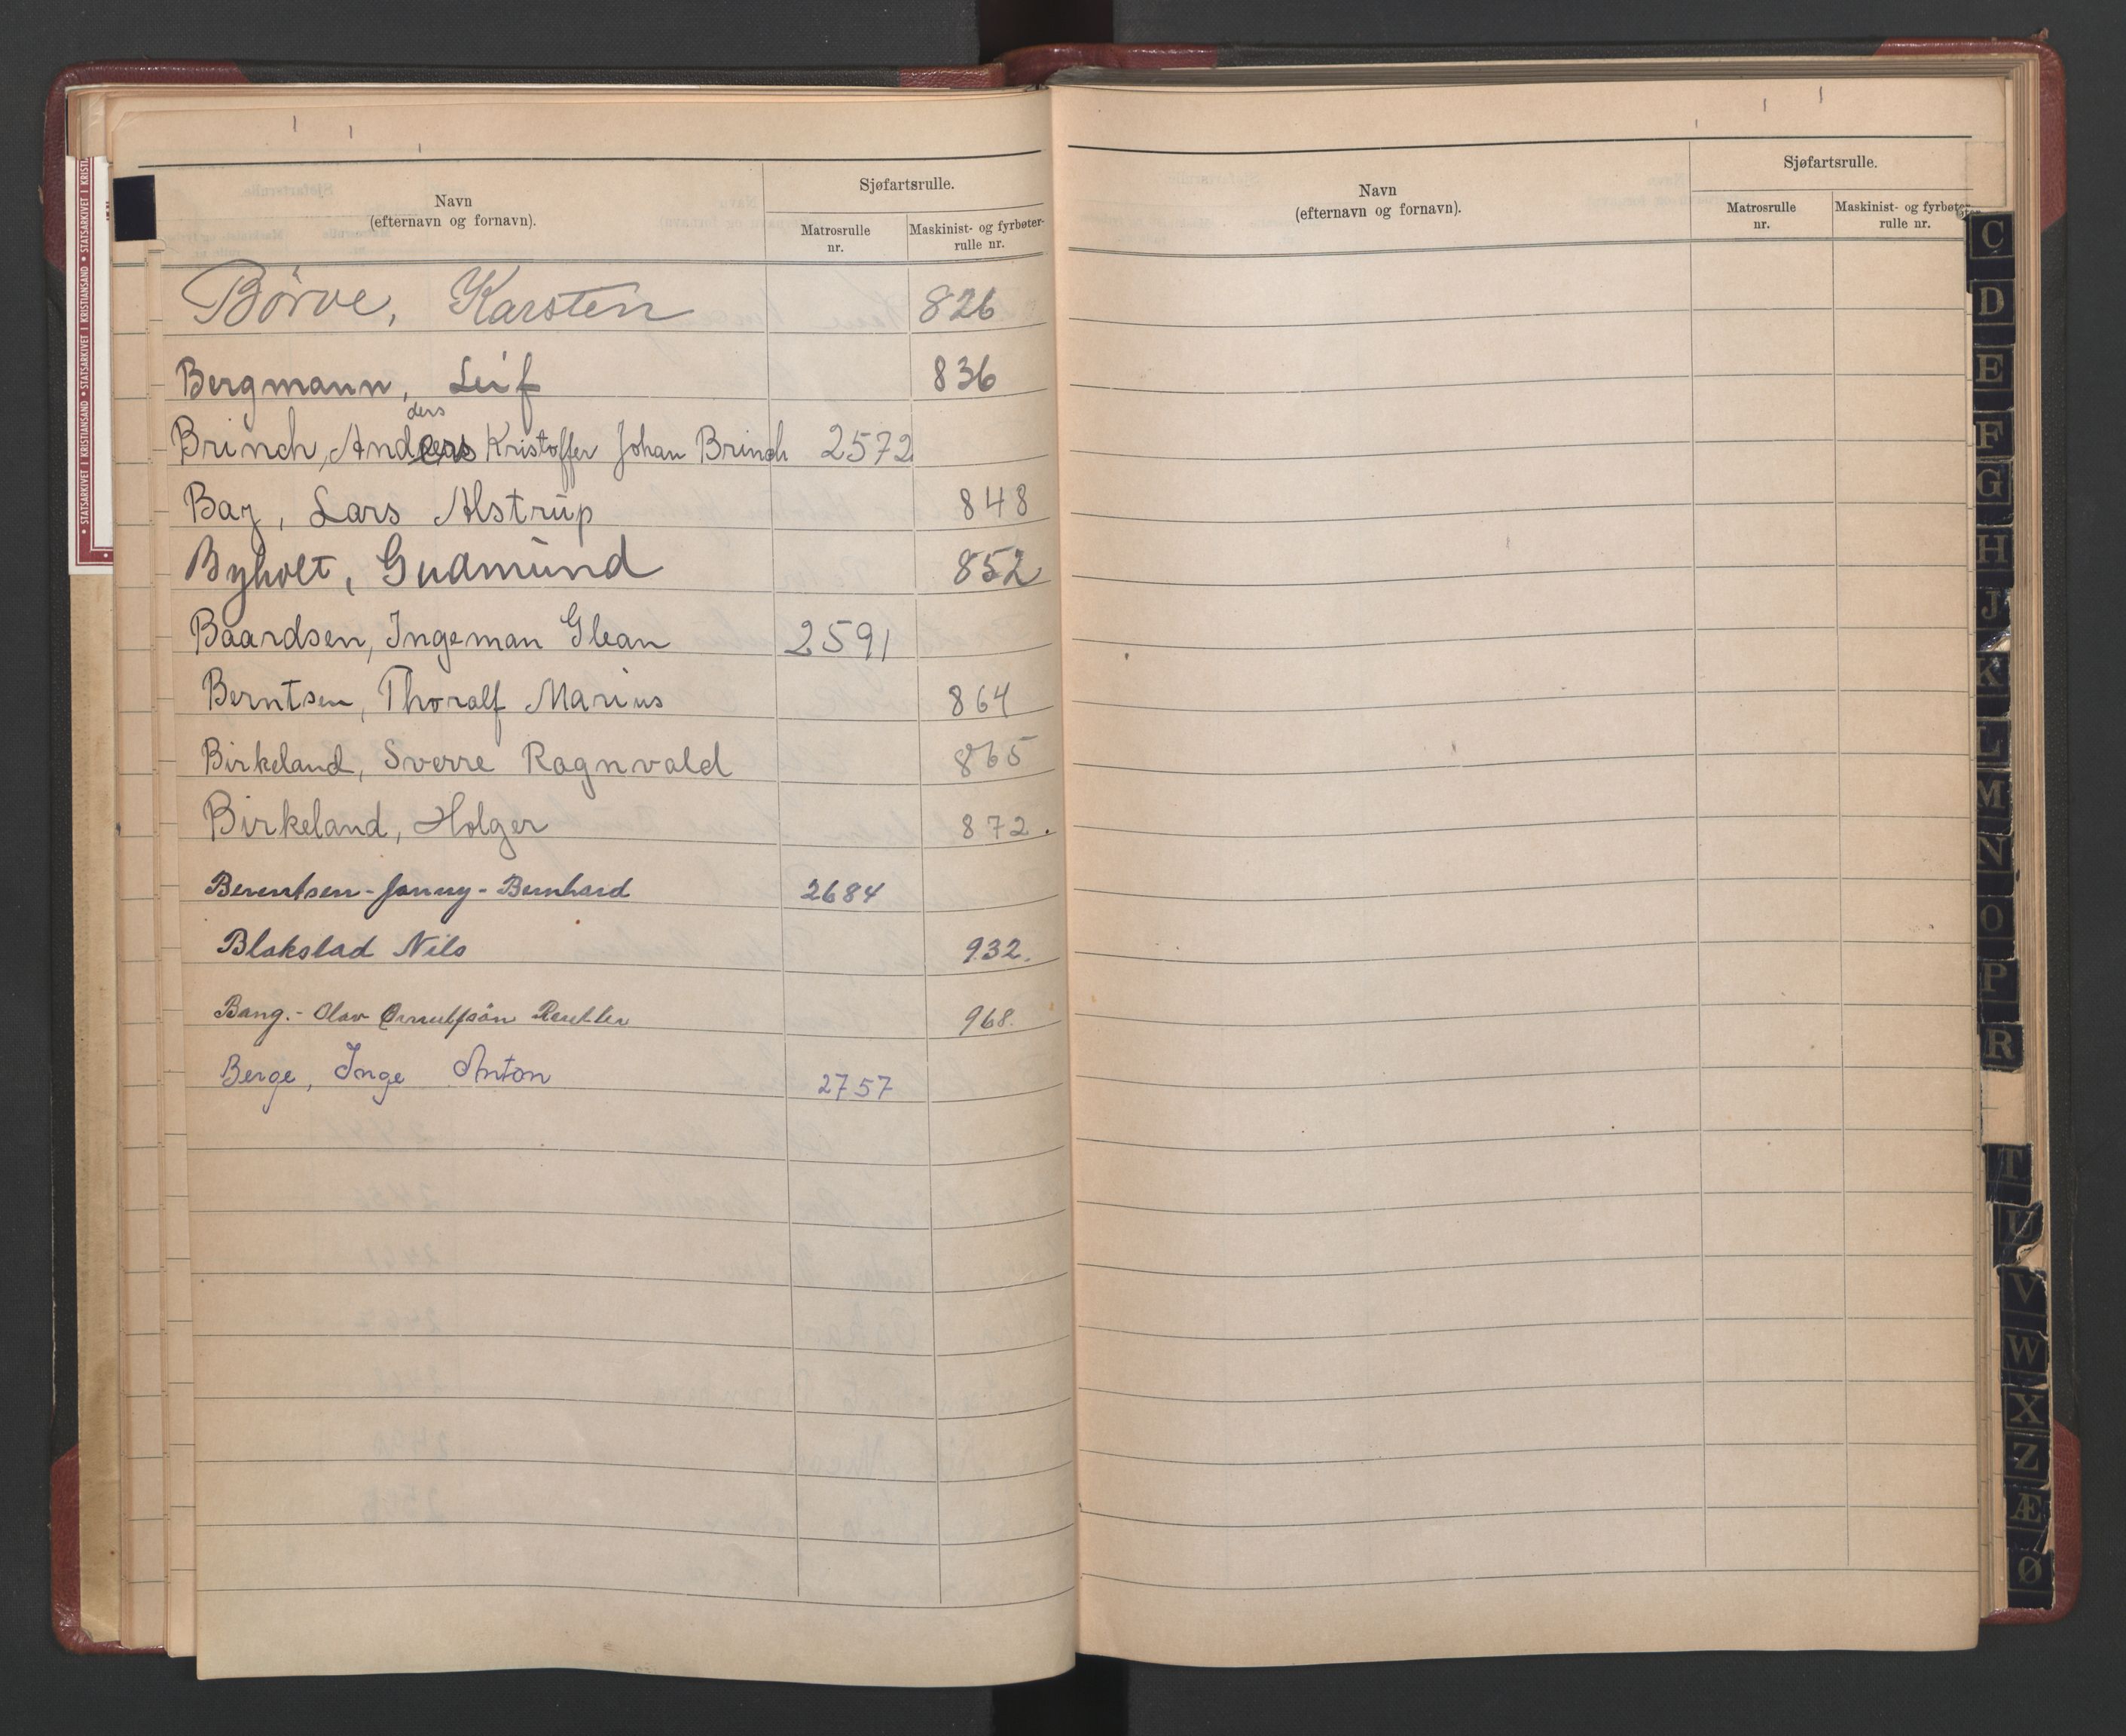 Navn
(efternavn og fornavn).
Sjøfartsrulle.
Matrosrulle
nr.
Maskinist- og fyrbøter-
rulle nr.
Børve, Karsten 826
Bergmann, Leif 836
ders
Brinch, Andreas Kristoffer Johan Brinch 2572
Bay, Lars Alstrup 848
Byholt, Gudmund 852
Baardsen, Ingeman Glean 2591
Berntsen, Thoralf Marius 864
Birkeland, Sverre Ragnvald 865
Birkeland, Holger 872.
Berentsen - Jonny - Bernhard 2684
Blakstad Nils 932.
Bang. - Olav 968.
Berge, Inge Anton 2757
Navn
(efternavn og fornavn).
Sjøfartsrulle.
Matrosrulle
nr.
Maskinist- og fyrbøter-
rulle nr.
C
D
E
F
G
H
J
K
L
M
N
O
P
R
T
U
V
W
X
Z
Æ
Ø
• STATSARKIVET I KRISTIANSAND • STATSARKIVET I KRISTIANSAND • STATSARKIVET I KRISTI